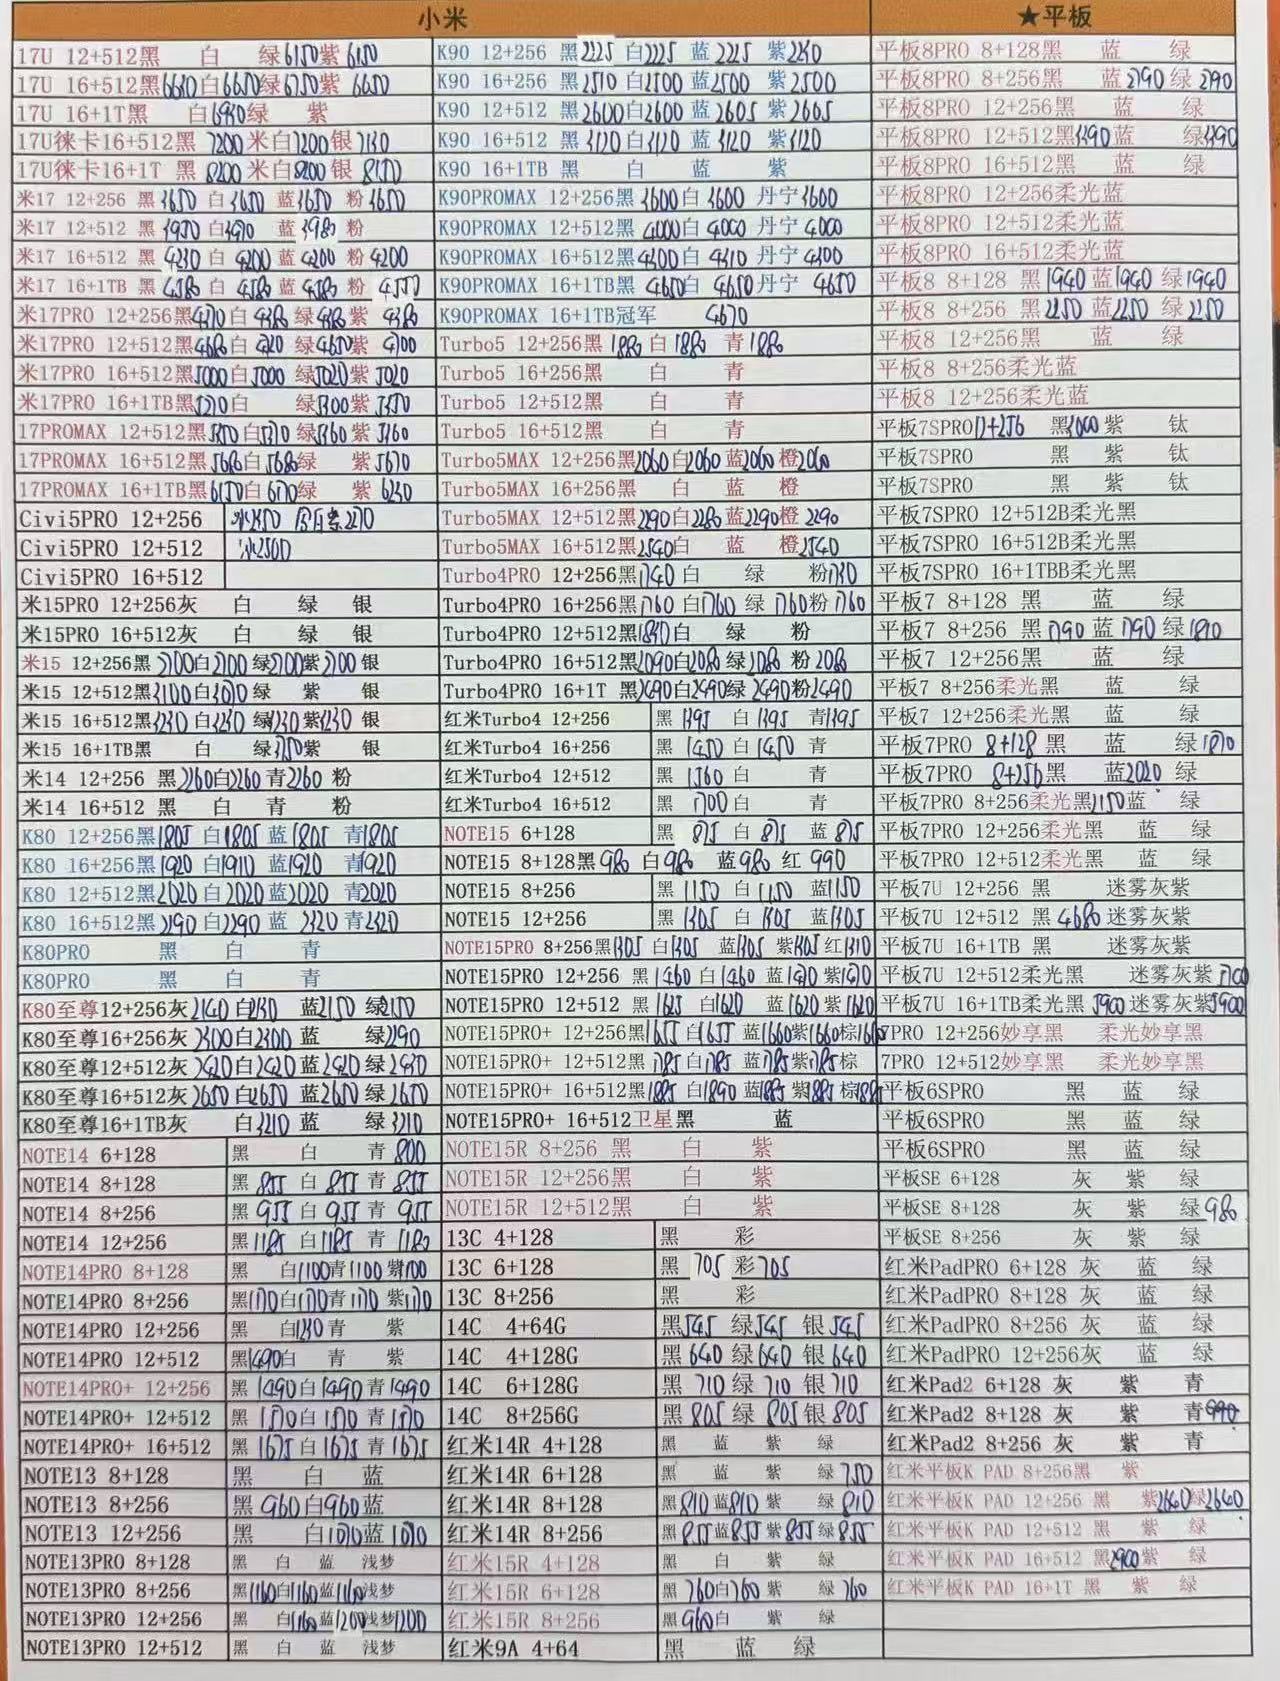 小米
17U 12+512黑 白 绿6150紫6150
17U 16+512黑6600白6650绿6750紫6650
17U 16+1T黑 白6950绿 紫
17U徕卡16+512黑 7200 米白7200银7130
17U徕卡16+1T 黑 8200 米白8200银8150
米17 12+256 黑3650 白3650 蓝3650 粉3650
米17 12+512 黑3950白3970 蓝3980粉
米17 16+512 黑4230 白4200 蓝4200粉4200
米17 16+1TB 黑4580 白4580蓝4580粉4550
米17PRO 12+256黑4370白4380绿4380紫4380
米17PRO 12+512黑4680白4720绿4650紫4700
米17PRO 16+512黑5000白5000绿5020紫5020
米17PRO 16+1TB黑5270白 绿5300紫5350
17PROMAX 12+512黑5350白5370绿5360紫5360
17PROMAX 16+512黑5680白5680绿 紫5670
17PROMAX 16+1TB黑6150白6170绿 紫6230
Civi5PRO 12+256
Civi5PRO 12+512 冰2500
Civi5PRO 16+512
米15PRO 12+256灰 白 绿 银
米15PRO 16+512灰 白 绿 银
米15 12+256黑2700白2700绿2700紫2700银
米15 12+512黑3100白3070绿 紫 银
米15 16+512黑3230白3230绿3230紫3230银
米15 16+1TB黑 白 绿3750紫 银
米14 12+256 黑2260白2260青2260粉
米14 16+512 黑 白 青 粉
K80 12+256黑1805白1805蓝1805 青1805
K80 16+256黑1920白1910蓝1920 青1920
K80 12+512黑2020白2020蓝2020 青2020
K80 16+512黑2290白2290蓝2320青2320
K80PRO 黑 白 青
K80PRO 黑 白 青
K80至尊12+256灰2140白2130 蓝2150绿2150
K80至尊16+256灰2300白2300蓝 绿2290
K80至尊12+512灰2420白2420蓝2420绿2430
K80至尊16+512灰2650白2650蓝2650绿2650
K80至尊16+1TB灰 白3210蓝 绿3210
NOTE14 6+128 黑 白 青800
NOTE14 8+128 黑855白855青855
NOTE14 8+256 黑955白955青955
NOTE14 12+256 黑1185白1185青1180
NOTE14PRO 8+128 黑 白1100青1100紫1100
NOTE14PRO 8+256 黑1170白1170青1170紫1170
NOTE14PRO 12+256 黑 白1230青 紫
NOTE14PRO 12+512 黑1490白 青 紫
NOTE14PRO+ 12+256 黑1490白1490青1490
NOTE14PRO+ 12+512 黑1570白1570青1570
NOTE14PRO+ 16+512 黑1675白1675青1675
NOTE13 8+128 黑 白 蓝
NOTE13 8+256 黑960白960蓝
NOTE13 12+256 黑 白1070蓝1070
NOTE13PRO 8+128 黑 白 蓝 浅梦
NOTE13PRO 8+256 黑1160白1160蓝1160浅梦
NOTE13PRO 12+256 黑 白1160蓝1200浅梦1200
NOTE13PRO 12+512 黑 白 蓝 浅梦
K90 12+256 黑2225白2225 蓝2225 紫2230
K90 16+256 黑2510白2500 蓝2500 紫2500
K90 12+512 黑2600白2600 蓝2605 紫2605
K90 16+512 黑3120白3120 蓝3120 紫3120
K90 16+1TB 黑 白 蓝 紫
K90PROMAX 12+256黑3600白3600 丹宁3600
K90PROMAX 12+512黑4000白4000 丹宁4000
K90PROMAX 16+512黑4300白4310 丹宁4300
K90PROMAX 16+1TB黑4650白4650丹宁4650
K90PROMAX 16+1TB冠军 4670
Turbo5 12+256黑1880白1880 青1880
Turbo5 16+256黑 白 青
Turbo5 12+512黑 白 青
Turbo5 16+512黑 白 青
Turbo5MAX 12+256黑2060白2060蓝2060橙2060
Turbo5MAX 16+256黑 白 蓝 橙
Turbo5MAX 12+512黑2290白2280蓝2290橙2290
Turbo5MAX 16+512黑2540白 蓝 橙2540
Turbo4PRO 12+256黑1740白 绿 粉1730
Turbo4PRO 16+256黑1760白1760绿1760粉1760
Turbo4PRO 12+512黑1840白 绿 粉
Turbo4PRO 16+512黑2090白2080绿2080粉2080
Turbo4PRO 16+1T 黑2490白2490绿2490粉2490
红米Turbo4 12+256 黑1395白1395青1395
红米Turbo4 16+256 黑1450白1450青
红米Turbo4 12+512 黑1560白 青
红米Turbo4 16+512 黑1700白 青
NOTE15 6+128 黑875白875蓝875
NOTE15 8+128黑980白980 蓝980红990
NOTE15 8+256 黑1150白1150蓝1150
NOTE15 12+256 黑1305白1305蓝1305
NOTE15PRO 8+256黑1305白1305蓝1305紫1305红1310
NOTE15PRO 12+256 黑1460白1460蓝1470紫1470
NOTE15PRO 12+512 黑1625白1620蓝1620紫1620
NOTE15PRO+ 12+256黑1655白1655蓝1660紫1660棕1660
NOTE15PRO+ 12+512黑1785白1785蓝1785紫1785棕
NOTE15PRO+ 16+512黑1885白1890蓝1885紫1885棕1885
NOTE15PRO+ 16+512卫星黑 蓝
NOTE15R 8+256 黑 白 紫
NOTE15R 12+256黑 白 紫
NOTE15R 12+512黑 白 紫
13C 4+128 黑 彩
13C 6+128 黑705彩705
13C 8+256 黑 彩
14C 4+64G 黑545绿545银545
14C 4+128G 黑640绿640银640
14C 6+128G 黑710绿710银710
14C 8+256G 黑805绿805银805
红米14R 4+128 黑 蓝 紫 绿
红米14R 6+128 黑 蓝 紫 绿750
红米14R 8+128 黑810蓝810紫 绿810
红米14R 8+256 黑855蓝855紫855绿855
红米15R 4+128 黑 白 紫 绿
红米15R 6+128 黑760白760紫 绿760
红米15R 8+256 黑960白 紫 绿
红米9A 4+64 黑 蓝 绿
★平板
平板8PRO 8+128黑 蓝 绿
平板8PRO 8+256黑 蓝2790绿2790
平板8PRO 12+256黑 蓝 绿
平板8PRO 12+512黑3390蓝 绿3390
平板8PRO 16+512黑 蓝 绿
平板8PRO 12+256柔光蓝
平板8PRO 12+512柔光蓝
平板8PRO 16+512柔光蓝
平板8 8+128 黑1940蓝1940绿1940
平板8 8+256 黑2150蓝2150绿2150
平板8 12+256黑 蓝 绿
平板8 8+256柔光蓝
平板8 12+256柔光蓝
平板7SPRO12+256 黑3000紫 钛
平板7SPRO 黑 紫 钛
平板7SPRO 黑 紫 钛
平板7SPRO 12+512B柔光黑
平板7SPRO 16+512B柔光黑
平板7SPRO 16+1TBB柔光黑
平板7 8+128 黑 蓝 绿
平板7 8+256 黑1790蓝1790绿1810
平板7 12+256黑 蓝 绿
平板7 8+256柔光黑 蓝 绿
平板7 12+256柔光黑 蓝 绿
平板7PRO 8+128黑 蓝 绿1870
平板7PRO 8+256黑 蓝2020绿
平板7PRO 8+256柔光黑2150蓝 绿
平板7PRO 12+256柔光黑 蓝 绿
平板7PRO 12+512柔光黑 蓝 绿
平板7U 12+256 黑 迷雾灰紫
平板7U 12+512 黑4680迷雾灰紫
平板7U 16+1TB 黑 迷雾灰紫
平板7U 12+512柔光黑 迷雾灰紫
平板7U 16+1TB柔光黑5900迷雾灰紫5900
7PRO 12+256妙享黑 柔光妙享黑
7PRO 12+512妙享黑 柔光妙享黑
平板6SPRO 黑 蓝 绿
平板6SPRO 黑 蓝 绿
平板6SPRO 黑 蓝 绿
平板SE 6+128 灰 紫 绿
平板SE 8+128 灰 紫 绿980
平板SE 8+256 灰 紫 绿
红米PadPRO 6+128 灰 蓝 绿
红米PadPRO 8+128 灰 蓝 绿
红米PadPRO 8+256 灰 蓝 绿
红米PadPRO 12+256灰 蓝 绿
红米Pad2 6+128 灰 紫 青
红米Pad2 8+128 灰 紫 青990
红米Pad2 8+256 灰 紫 青
红米平板K PAD 8+256黑 紫
红米平板K PAD 12+256 黑 紫2640绿2640
红米平板K PAD 12+512 黑 紫 绿
红米平板K PAD 16+512 黑2900紫 绿
红米平板K PAD 16+1T 黑 紫 绿